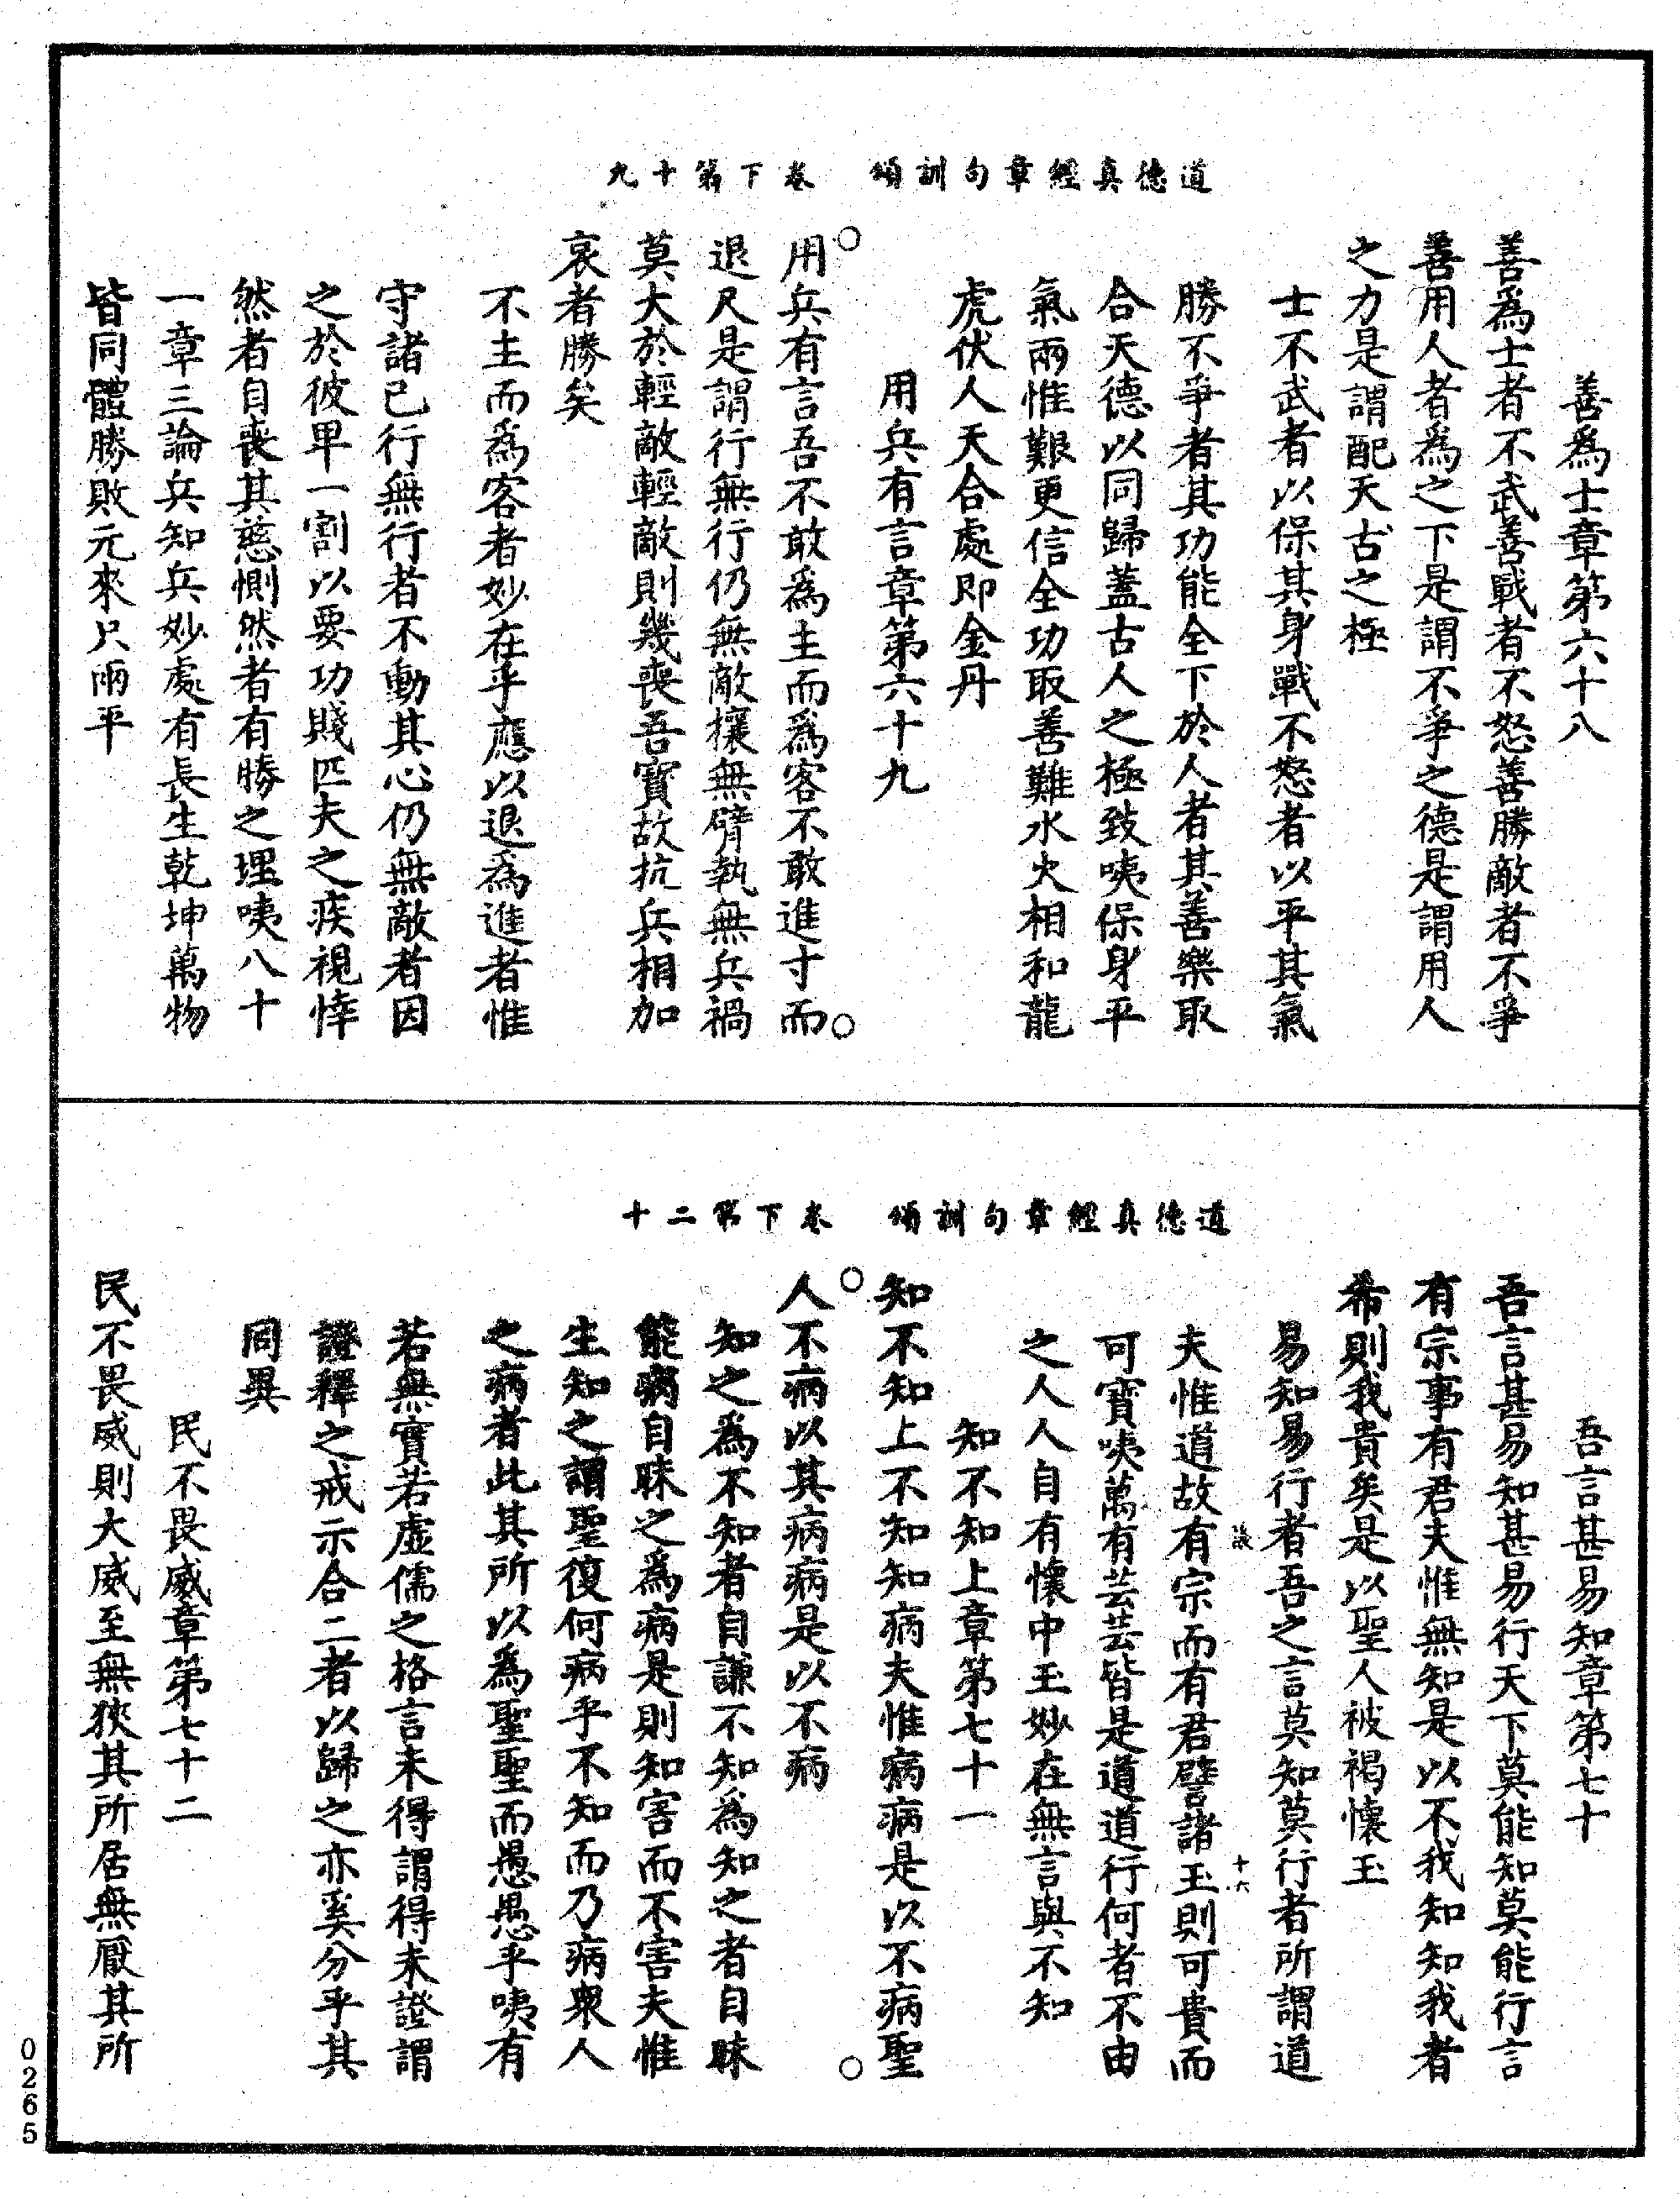 道德真經章句訓頌　卷下第十九
善為士章第六十八
善為士者不武善戰者不怒善勝敵者不爭
善用人者為之下是謂不爭之德是謂用人
之力是謂配天古之極
士不武者以保其身戰不怒者以平其氣
勝不爭者其功能全下於人者其善樂取
合天德以同歸蓋古人之極致咦保身平
氣兩惟艱更信全功取善難水火相和龍
虎伏人天合處即金丹
用兵有言章第六十九
○用兵有言吾不敢為主而為客不敢進寸而○
退尺是謂行無行仍無敵攘無臂執無兵禍
莫大於輕敵輕敵則幾喪吾寶故抗兵相加
哀者勝矣
不主而為客者妙在乎應以退為進者惟
守諸己行無行者不動其心仍無敵者因
之於彼卑一割以要功賤匹夫之疾視悻
然者自喪其慈惻然者有勝之理咦八十
一章三論兵知兵妙處有長生乾坤萬物
皆同體勝敗元來只兩平
道德真經章句訓頌　卷下第二十
吾言甚易知章第七十
吾言甚易知甚易行天下莫能知莫能行言
有宗事有君夫惟無知是以不我知知我者
希則我貴矣是以聖人被褐懷玉
易知易行者吾之言莫知莫行者所謂道
十六
夫惟道故有宗而有君譬諸玉則可貴而
可寶咦萬有芸芸皆是道道行何者不由
之人人自有懷中玉妙在無言與不知
知不知上章第七十一
知不知上不知知病夫惟病病是以不病聖
○人不病以其病病是以不病○
知之為不知者自謙不知為知之者自昧
能病自昧之為病是則知害而不害夫惟
生知之謂聖復何病乎不知而乃病眾人
之病者此其所以為聖聖而愚愚乎咦有
若無實若虛儒之格言未得謂得未證謂
證釋之戒示合二者以歸之亦奚分乎其
同異
民不畏威章第七十二
民不畏威則大威至無狹其所居無厭其所
0265